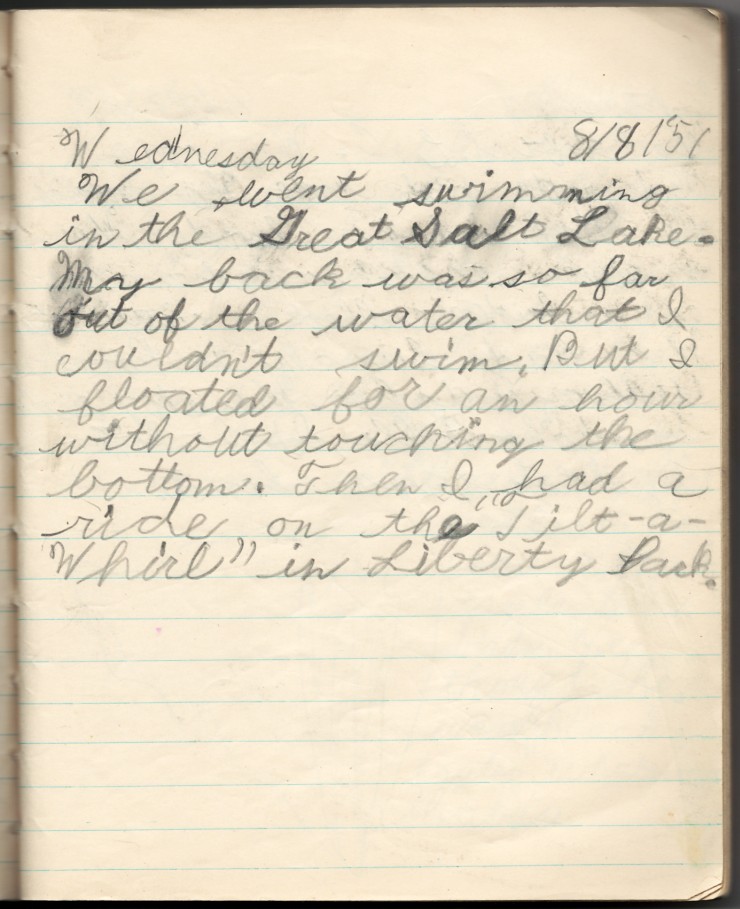 Wednesday 8/8/51
We went swimming
in the Great Salt Lake.
My back was so far
out of the water that I
couldn't swim. But I
floated for an hour
without touching the
bottom. Then I had a
ride on the "Tilt-a-
Whirl" in Liberty Park.